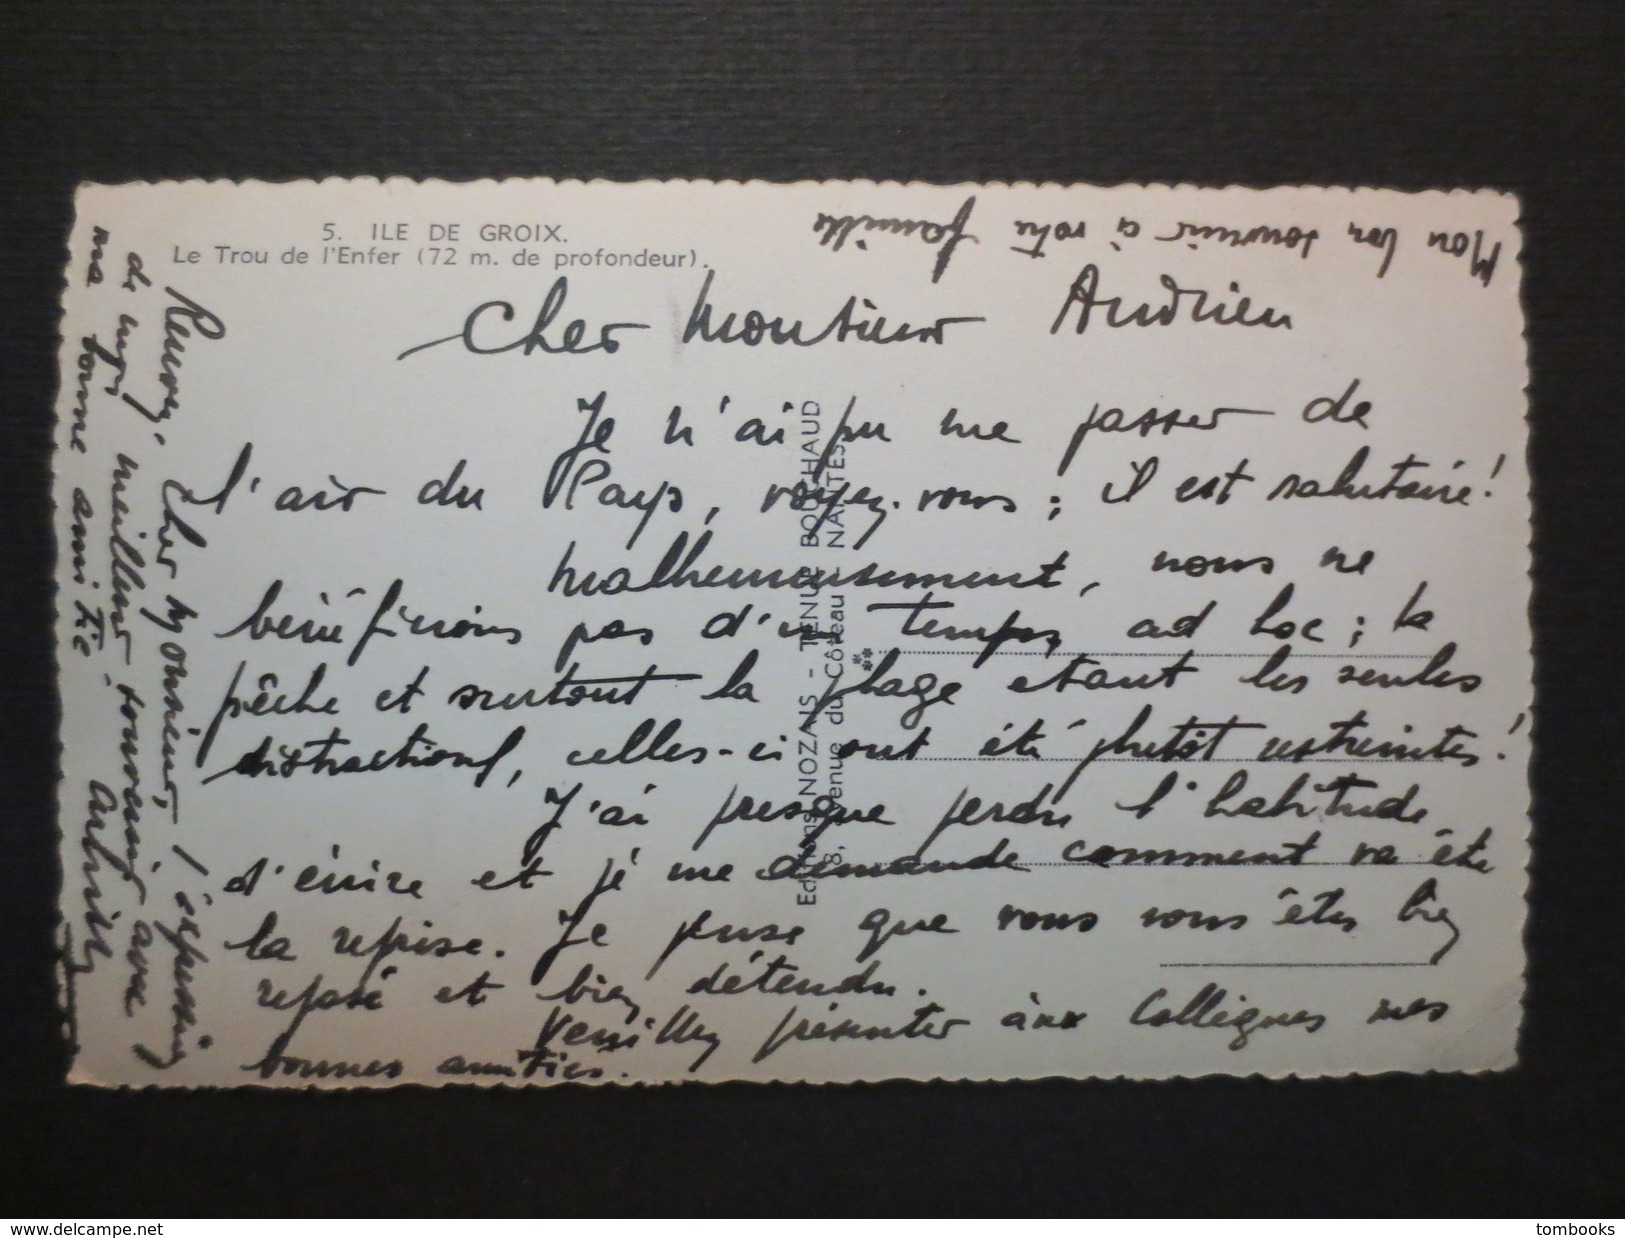 5. ILE DE GROIX.
Le Trou de l'Enfer (72 m. de profondeur).
Cher Monsieur Andrieu
Je n'ai pu me passer de
l'air du Pays, voyez-vous ; il est salutaire !
Malheureusement, nous ne
bénéficions pas d'un temps ad hoc ; la
pêche et surtout la plage étant les seules
distractions, celles-ci ont été plutôt restreintes !
J'ai presque perdu l'habitude
d'écrire et je me demande comment va être
la reprise. Je pense que vous vous êtes bien
reposé et bien détendu.
Veuillez présenter aux Collègues mes
bonnes amitiés.
Recevez, Cher Monsieur, l'expression
de mon meilleur souvenir avec
ma bonne amitié
Mon bon souvenir à votre famille
Editions NOZAIS - TENUE BOUCHAUD
8, Avenue du Côteau - NANTES
delcampe.net
tombooks